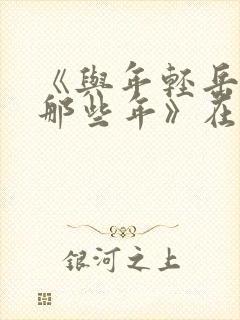 《與年輕岳
那些年》在
銀河之上